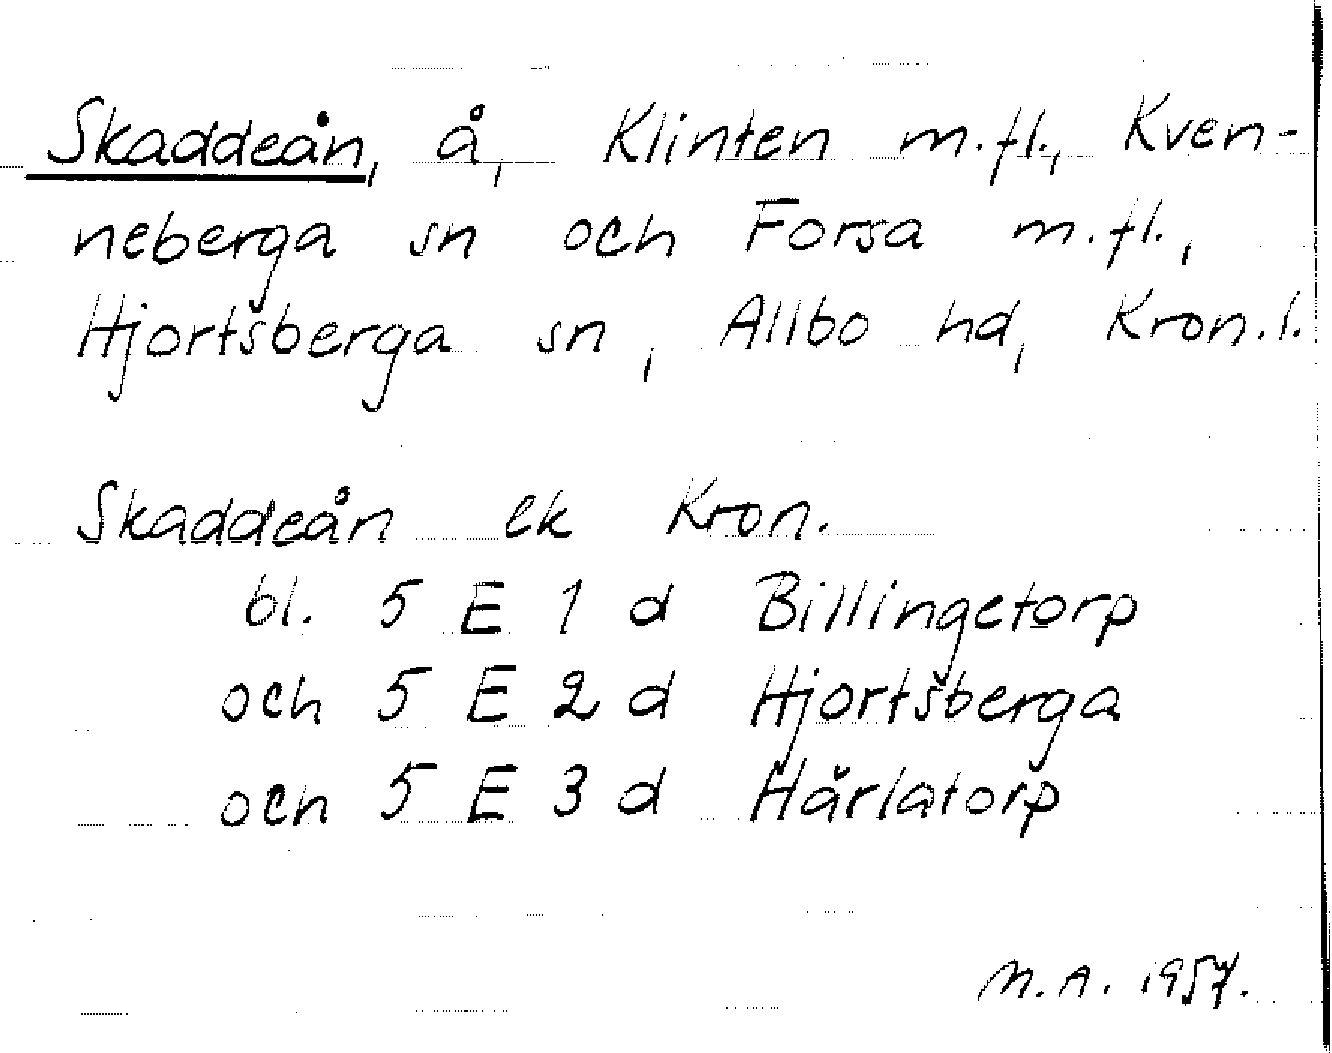 Skaddeån, å, Klinten m.fl., Kven-
neberga sn och Forsa m.fl.,
Hjortsberga sn, Allbo hd, Kron.l.
Skaddeån ek Kron.
bl. 5 E 1 d Billingetorp
och 5 E 2 d Hjortsberga
och 5 E 3 d Härlatorp
M.A. 1957.